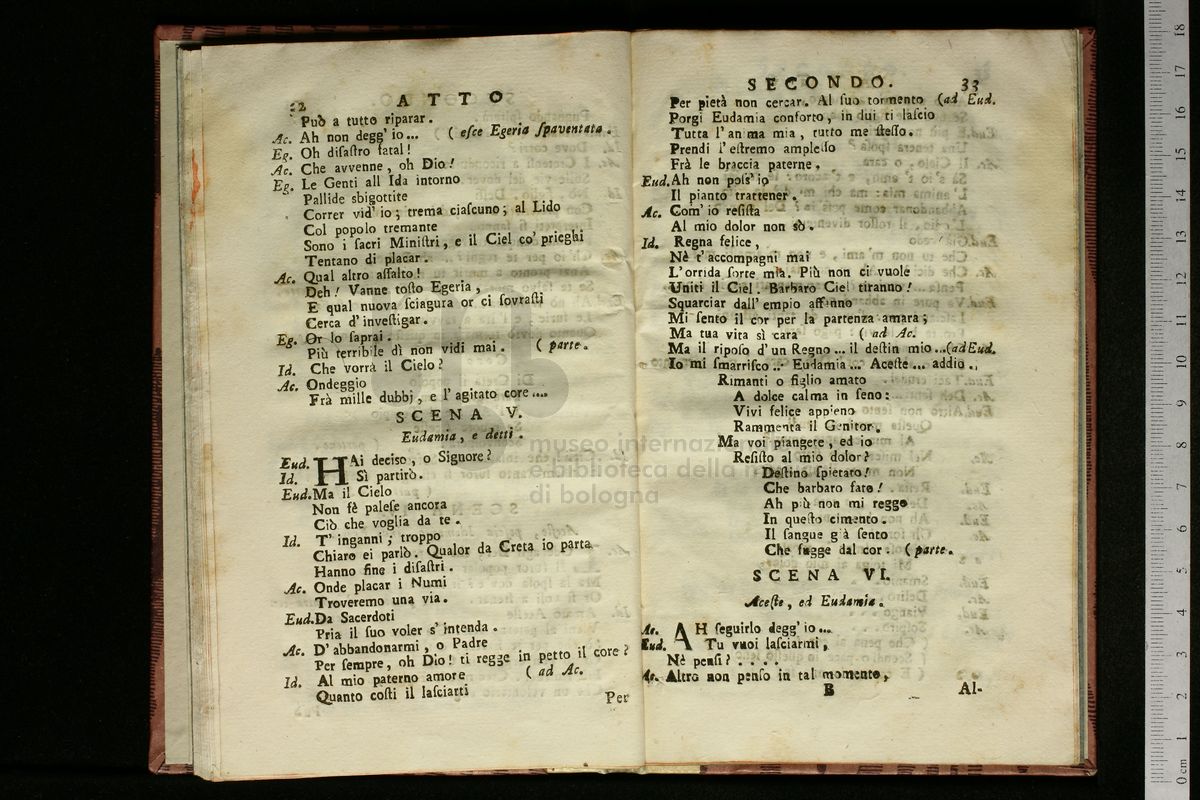 32 ATTO
Può a tutto riparar.
Ac. Ah non degg' io... ( esce Egeria spaventata.
Eg. Oh disastro fatal!
Ac. Che avvenne, oh Dio!
Eg. Le Genti all Ida intorno
Pallide sbigottite
Correr vid' io; trema ciascuno; al Lido
Col popolo tremante
Sono i sacri Ministri, e il Ciel co' prieghi
Tentano di placar.
Ac. Qual altro assalto!
Deh! Vanne tosto Egeria,
E qual nuova sciagura or ci sovrasti
Cerca d' investigar.
Eg. Or lo saprai.
Più terribile dì non vidi mai. ( parte.
Id. Che vorrà il Cielo?
Ac. Ondeggio
Frà mille dubbj, e l' agitato core....
SCENA V.
Eudamia, e detti.
Eud. HAi deciso, o Signore?
Id. Sì partirò.
Eud. Ma il Cielo
Non fè palese ancora
Ciò che voglia da te.
Id. T' inganni; troppo
Chiaro ei parlò. Qualor da Creta io parta
Hanno fine i disastri.
Ac. Onde placar i Numi
Troveremo una via.
Eud. Da Sacerdoti
Pria il suo voler s' intenda.
Ac. D' abbandonarmi, o Padre
Per sempre, oh Dio! ti regge in petto il core?
Id. Al mio paterno amore ( ad Ac.
Quanto costi il lasciarti
Per
SECONDO. 33
Per pietà non cercar. Al suo tormento (ad Eud.
Porgi Eudamia conforto, in lui ti lascio
Tutta l' anima mia, tutto me stesso.
Prendi l' estremo amplesso
Frà le braccia paterne.
Eud. Ah non poss' io
Il pianto trattener.
Ac. Com' io resista
Al mio dolor non sò.
Id. Regna felice,
Nè t' accompagni mai
L' orrida sorte mia. Più non ci vuole
Uniti il Ciel. Barbaro Ciel tiranno!
Squarciar dall' empio affanno
Mi sento il cor per la partenza amara;
Ma tua vita sì cara ( ad Ac.
Ma il riposo d' un Regno ... il destin mio ...(ad Eud.
Io mi smarrisco ... Eudamia ... Aceste ... addio..
Rimanti o figlio amato
A dolce calma in seno:
Vivi felice appieno
Rammenta il Genitor.
Ma voi piangete, ed io
Resisto al mio dolor?
Destino spietato!
Che barbaro fato!
Ah più non mi reggo
In questo cimento.
Il sangue già sento
Che fugge dal cor. (parte.
SCENA VI.
Aceste, ed Eudamia.
Ac. AH seguirlo degg' io...
Eud. Tu vuoi lasciarmi,
Nè pensi? ....
Ac. Altro non penso in tal momento,
B Al-
museo internazionale
e biblioteca della musica
di bologna
18
17
16
15
14
13
12
11
10
9
8
7
6
5
4
3
2
1
0 cm